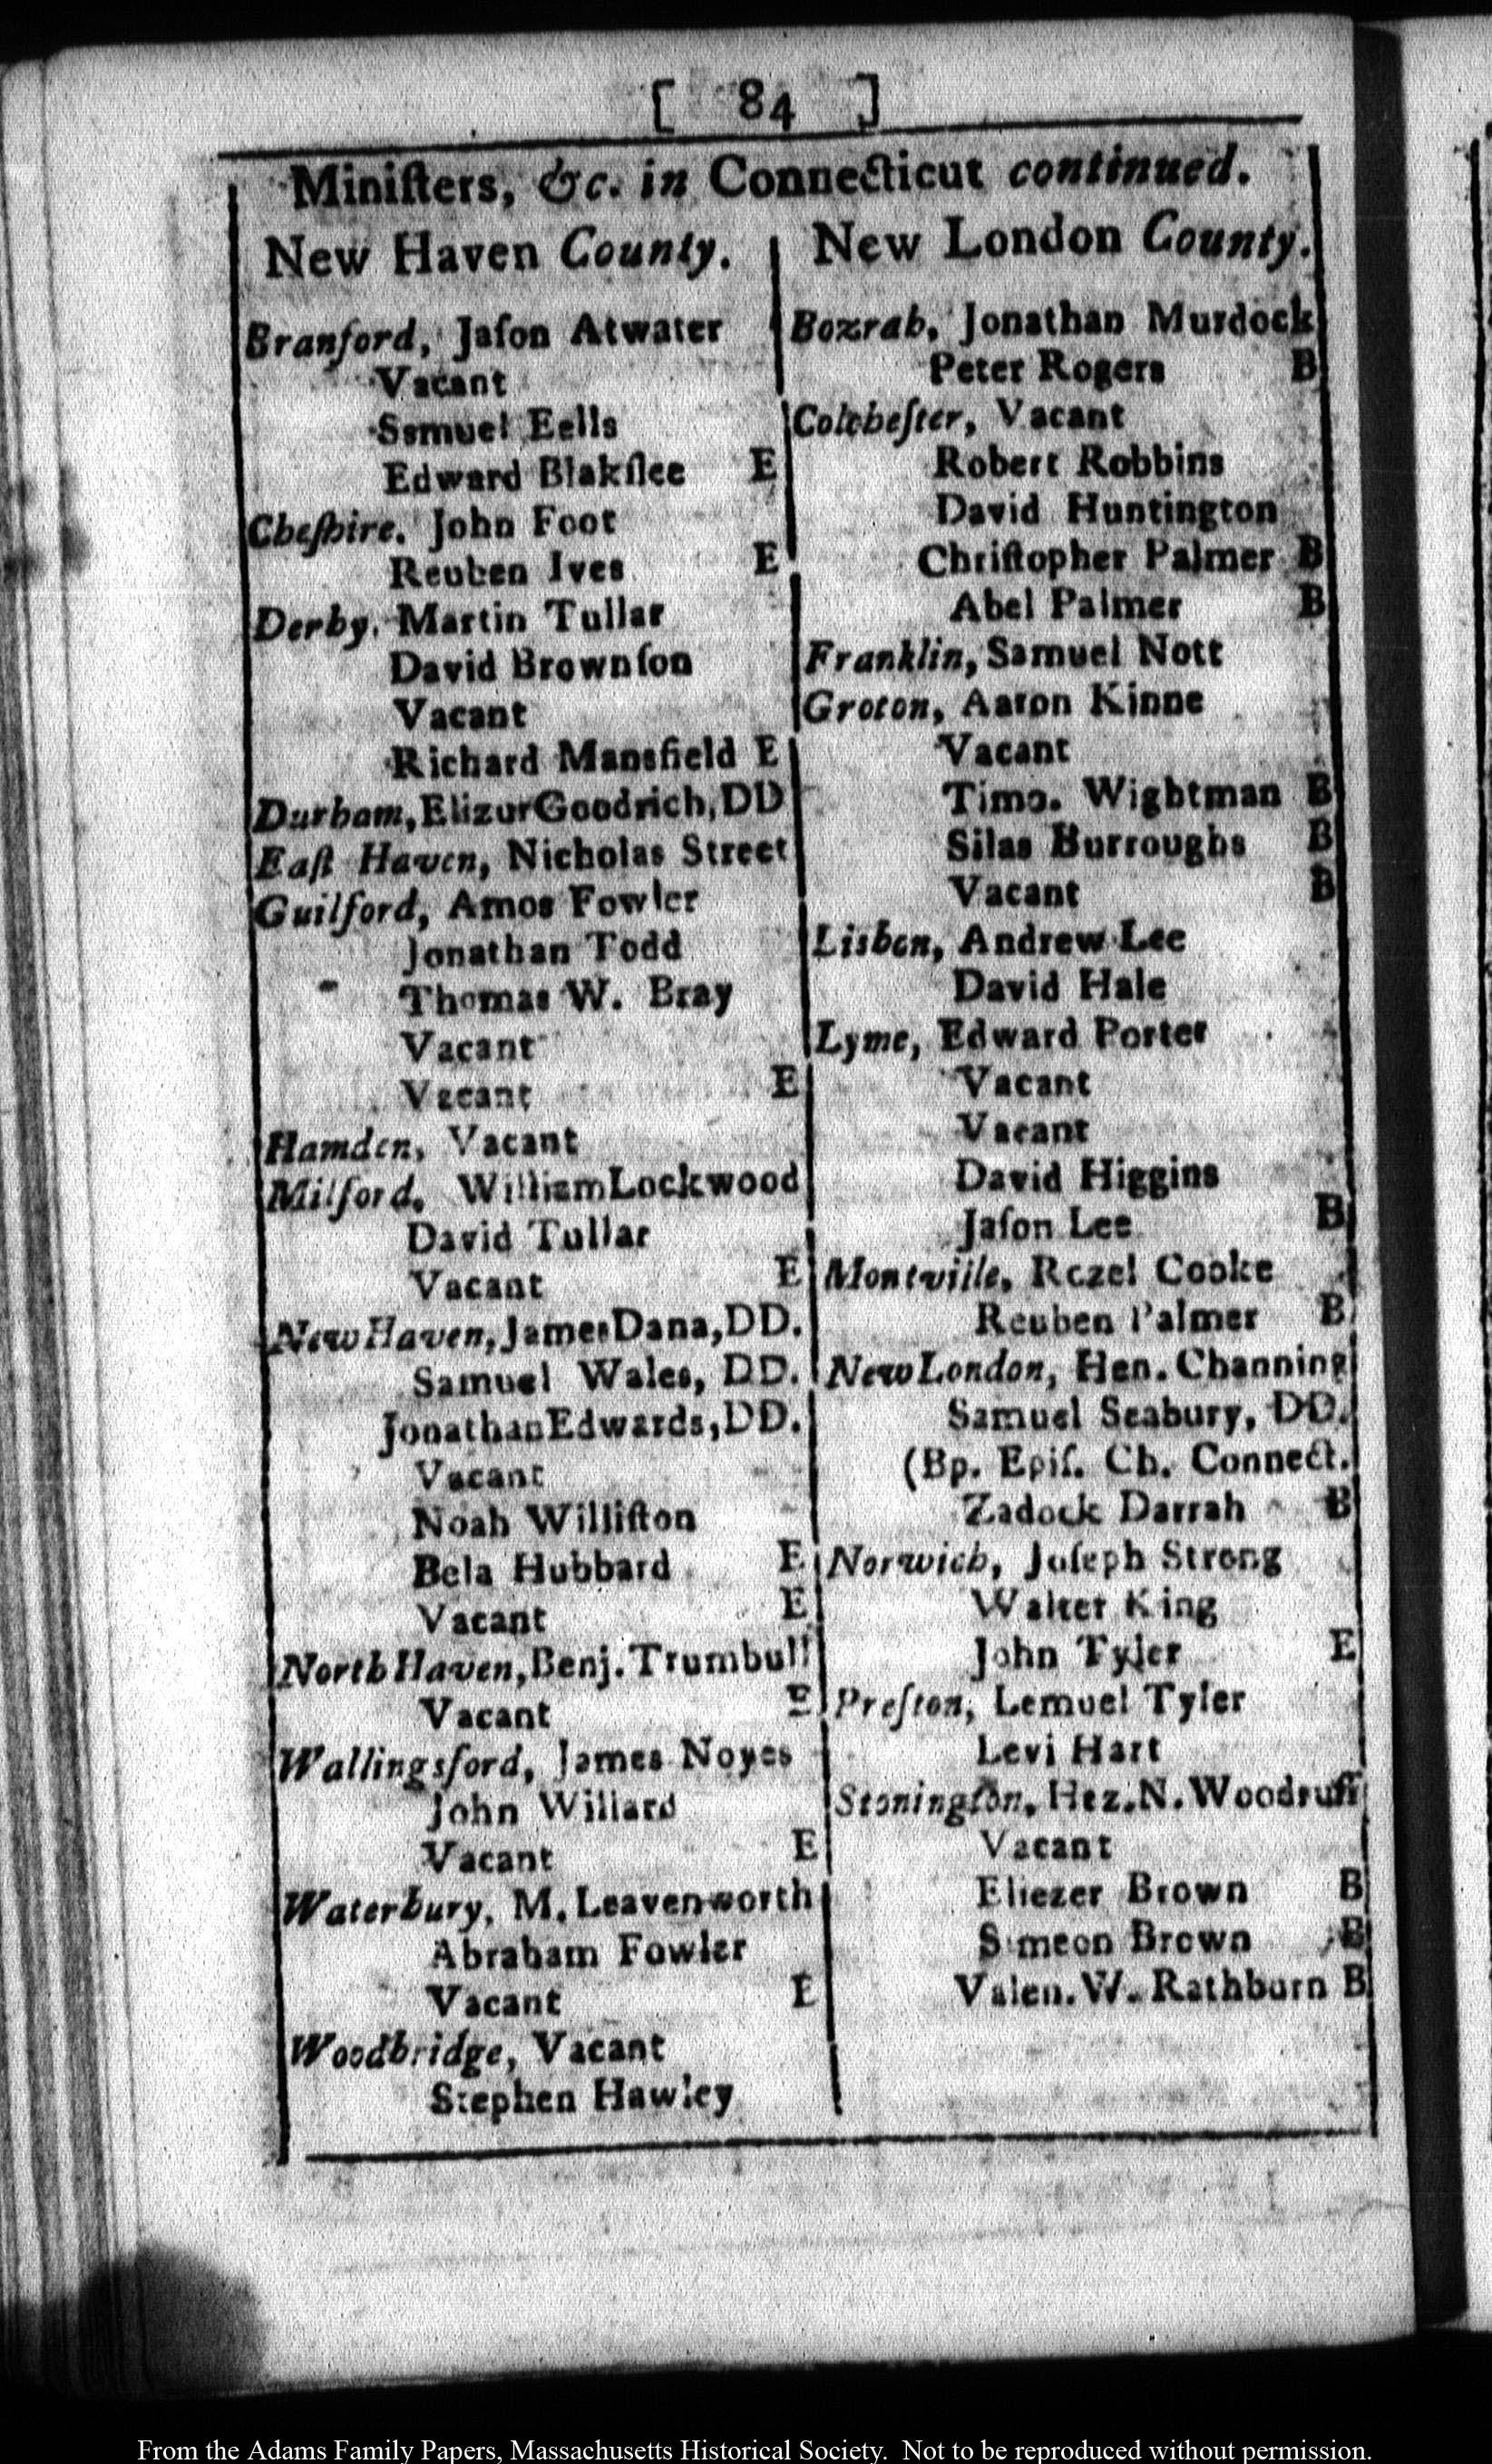 [ 84 ]
Miniſters, &c. in Connecticut continued.
New Haven County.
Branford, Jaſon Atwater
Vacant
Samuel Eells
Edward Blakſlee E
Cheſhire. John Foot
Reuben Ives E
Derby. Martin Tullar
David Brownſon
Vacant
Richard Mansfield E
Durham, Elizur Goodrich, DD
Eaſt Haven, Nicholas Street
Guilford, Amos Fowler
Jonathan Todd
Thomas W. Bray
Vacant
Vacant E
Hamden, Vacant
Milford, William Lockwood
David Tullar
Vacant E
New Haven, James Dana, DD.
Samuel Wales, DD.
Jonathan Edwards, DD.
Vacant
Noah Williſton
Bela Hubbard E
Vacant E
North Haven, Benj. Trumbull
Vacant E
Wallingsford, James Noyes
John Willard
Vacant E
Waterbury, M. Leavenworth
Abraham Fowler
Vacant E
Woodbridge, Vacant
Stephen Hawley
New London County.
Bozrah, Jonathan Murdock
Peter Rogers B
Colcheſter, Vacant
Robert Robbins
David Huntington
Chriſtopher Palmer B
Abel Palmer B
Franklin, Samuel Nott
Groton, Aaron Kinne
Vacant
Timo. Wightman B
Silas Burroughs B
Vacant B
Lisbon, Andrew Lee
David Hale
Lyme, Edward Porter
Vacant
Vacant
David Higgins
Jaſon Lee B
Montville, Rozel Cooke
Reuben Palmer B
New London, Hen. Channing
Samuel Seabury, DD.
(Bp. Epiſ. Ch. Connect.
Zadock Darrah B
Norwich, Joſeph Strong
Walter King
John Tyler E
Preſton, Lemuel Tyler
Levi Hart
Stonington, Hez. N. Woodruff
Vacant
Eliezer Brown B
Simeon Brown B
Valen. W. Rathburn B
From the Adams Family Papers, Massachusetts Historical Society. Not to be reproduced without permission.